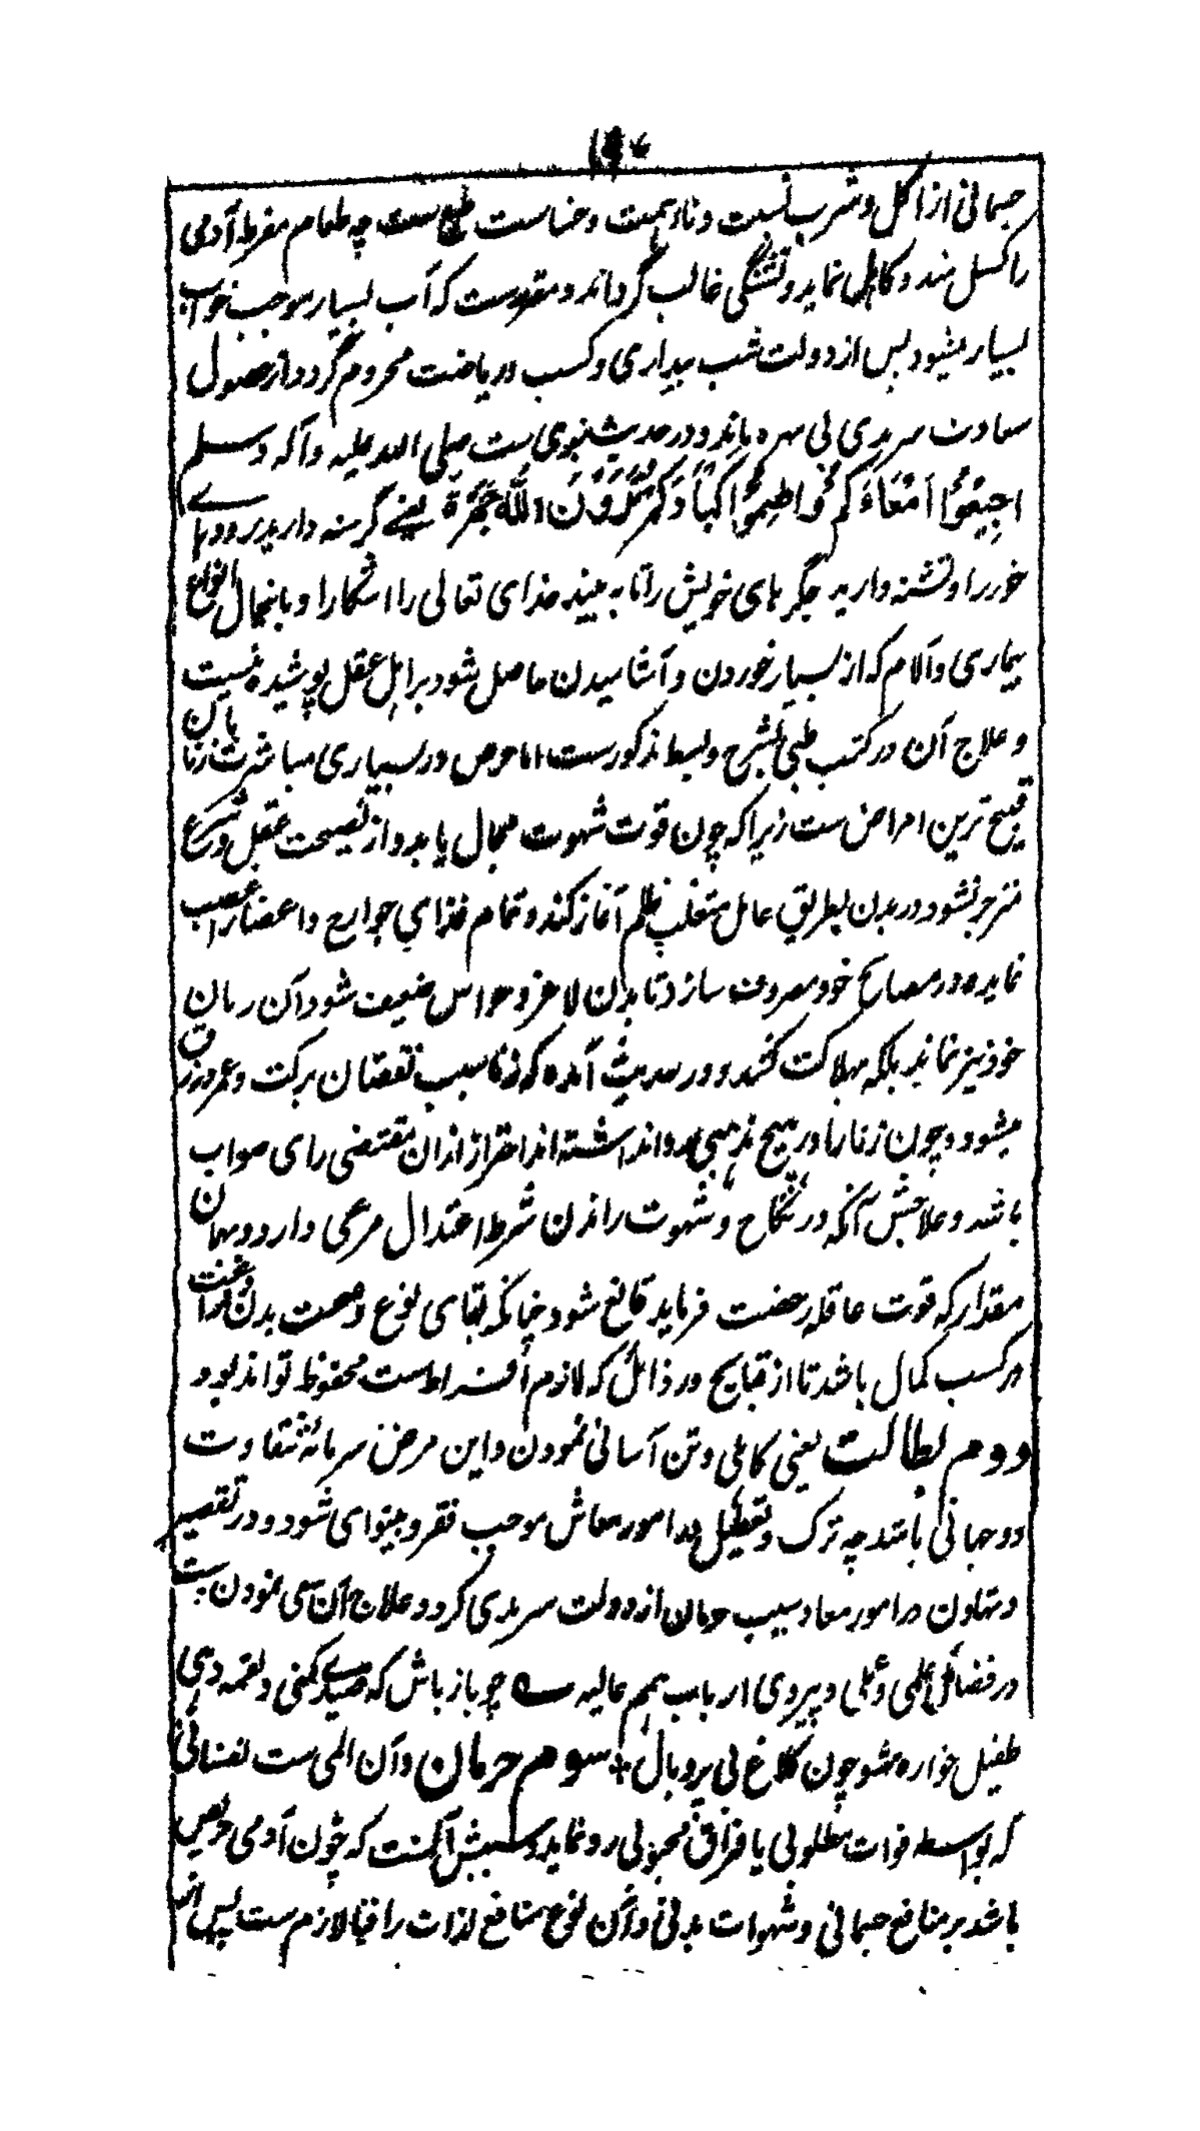 جسمانی از اکل و شرب نسبت دنائت همت و خساست طبع ست چه طعام مفرط آدمی
را کسلمند و کاهل نماید و تشنگی غالب گرداند و مقررست که آب بسیار موجب خواب
بسیار میشود پس از دولت شب بیداری و کسب و ریاضت محروم گردد و از حصول
سعادت سرمدی بی بهره ماند و در حدیث نبوی ست صلی الله علیه و آله و سلم
اَجِیعُوا اَمْعَاءَکُم وَاَطْمِئُوا اَکْبَادَکُم تَرَوْنَ اللّٰهَ جَهْرَةً یعنے گرسنه دارید روده‌ای
خود را و تشنه دارید جگرهای خویش را تا به بینید خدای تعالی را آشکارا و با اینحال انواع
بیماری و آلام که از بسیار خوردن و آشامیدن حاصل شود بر اهل عقل پوشیده نیست
و علاج آن در کتب طبی بشرح و بسط مذکورست اما حرص در بسیاری مباشرت با زنان
قبیح ترین امراض ست زیرا که چون قوت شهوت مجال یابد و از نصیحت عقل و شرع
منزجر نشود در بدن بطریق عامل متغلب ظلم آغاز کند و تمام غذای جوارح و اعضا را غصب
نماید و در مصالح خود مصروف سازد تا بدن لاغر و حواس ضعیف شود آن زمان
خود نیز نماند بلکه بهلاکت کشد و در حدیث آمده که زنا سبب نقصان برکت و عمر و رزق
میشود و چون زنا را در هیچ مذهبی روا نداشته اند احتراز از آن مقتضی رای صواب
باشد و علاجش آنکه در نکاح و شهوت راندن شرط اعتدال مرعی دارد و بهمان
مقدار که قوت عاقله رخصت فرماید قانع شود چنانکه بقای نوع و صحت بدن و فراغت
در کسب کمال باشد تا از قبایح و رذائل که لازم افراط ست محفوظ تواند بود
دوم بطالت یعنی کاهلی و تن آسانی نمودن و این مرض سرمایهٔ شقاوت
دو جهانی باشد چه ترک و تعطیل در امور معاش موجب فقر و بینوای شود و در تقصیر
و تهاون در امور معاد سبب حرمان از دولت سرمدی گردد و علاج آن سعی نمودن ست
در فضائل علمی و عملی و پیروی ارباب همم عالیه ؎ چو باز باش که صیدے کنی و لقمه دهی
طفیل خواره مشو چون کلاغ بی پر و بال * سوم حرمان و آن المی ست نفسانی
که بواسطه فوات مطلوبی یا فراق محبوبی رو نماید و سببش آنست که چون آدمی حریص
باشد بر منافع جسمانی و شهوات بدنی و آن نوع منافع لذات را فنا لازم ست پس